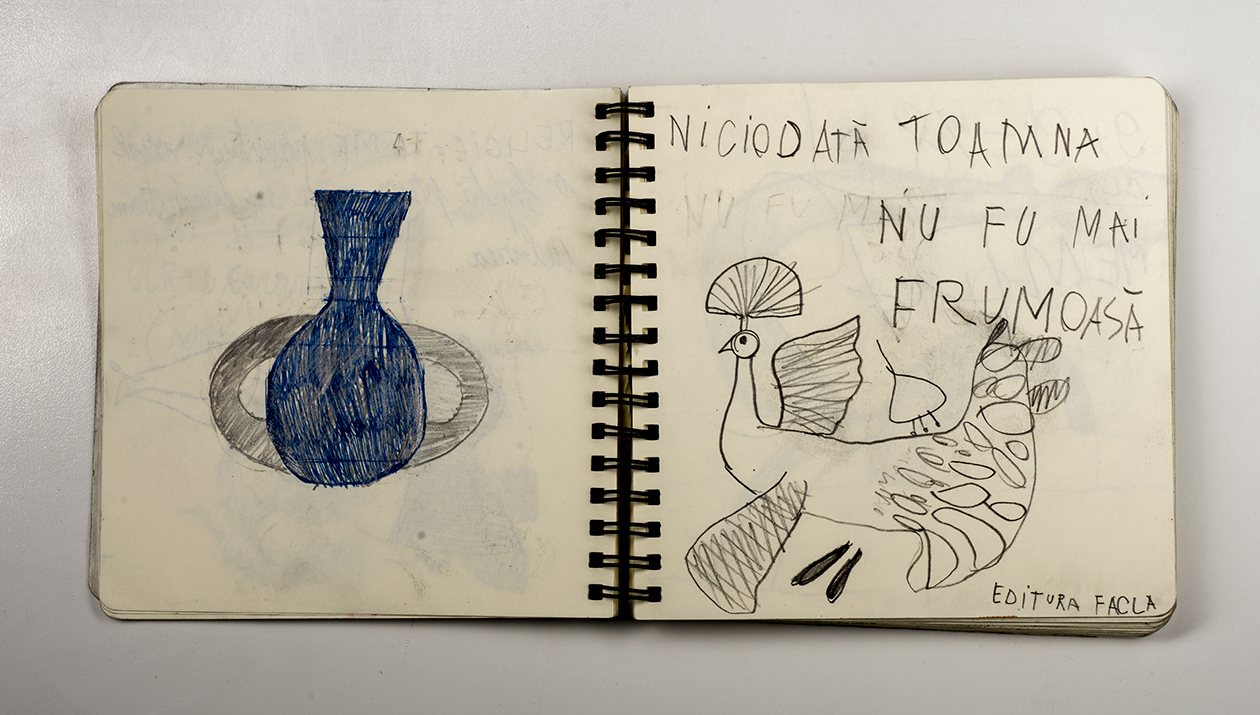 NICIODATĂ TOAMNA
NU FU MAI
FRUMOASĂ
EDITURA FACLA